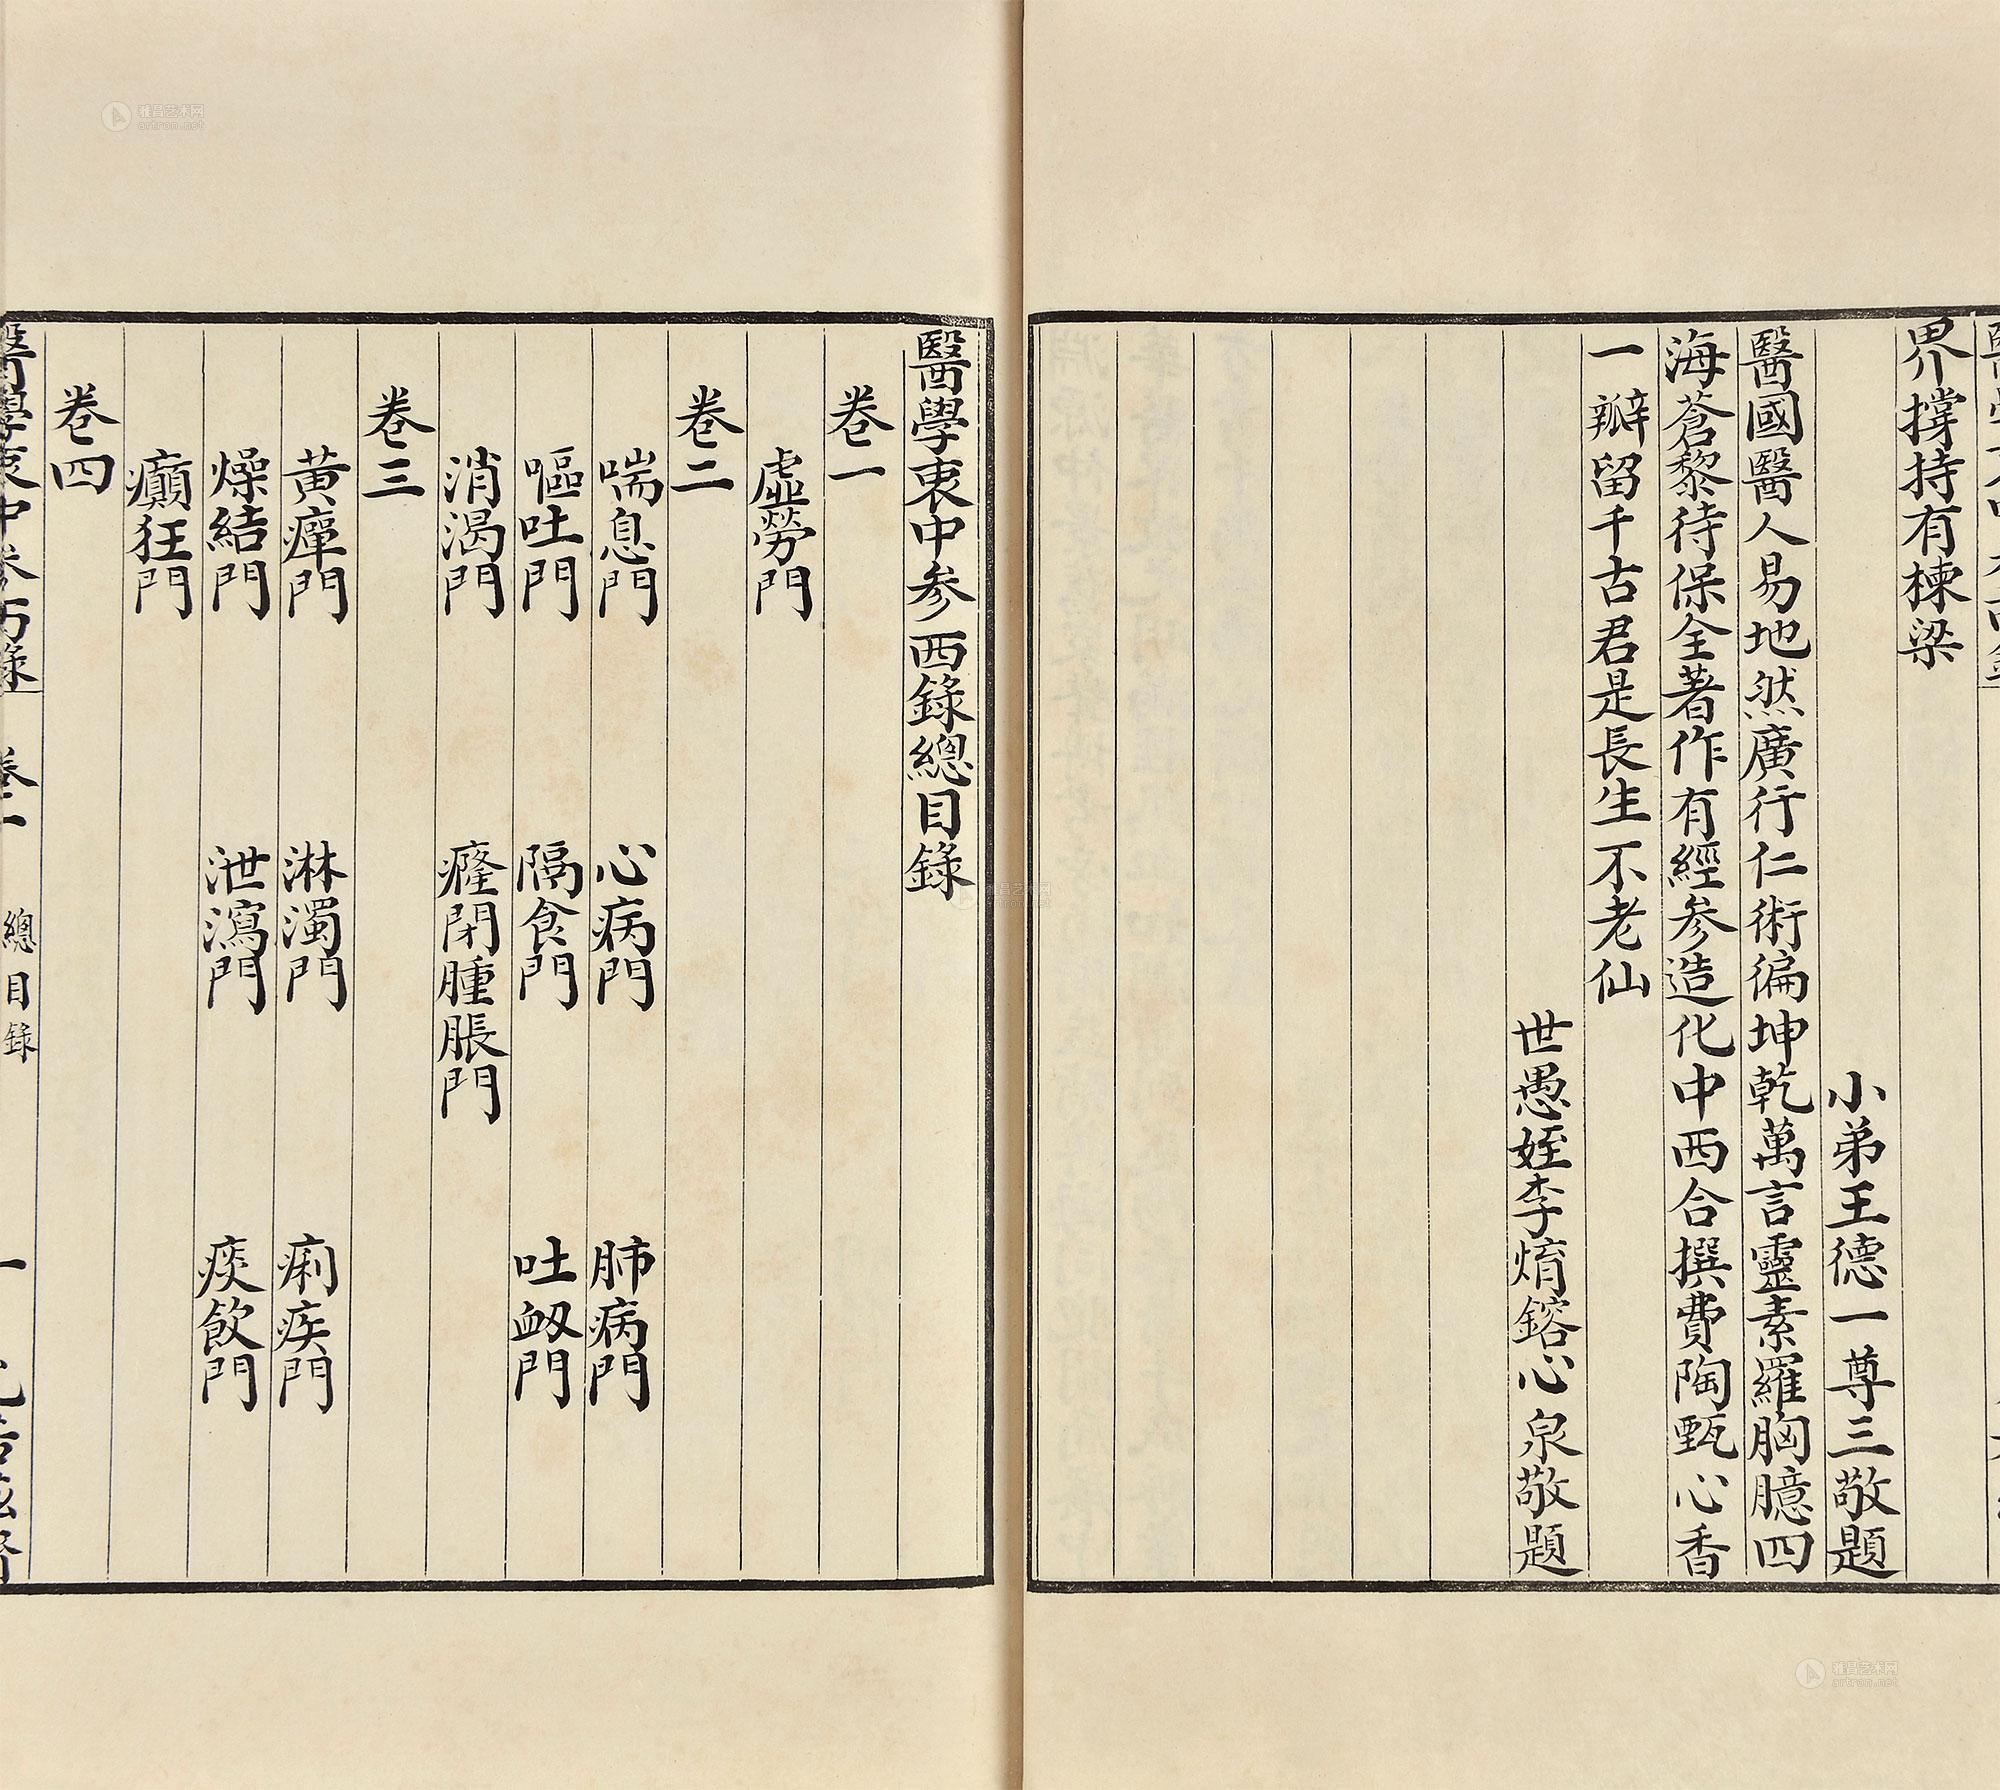 界撐持有棟梁
小弟王德一尊三敬題
醫國醫人易地然廣行仁術徧坤乾萬言靈素羅胸臆四
海蒼黎待保全著作有經參造化中西合撰費陶甄心香
一瓣留千古君是長生不老仙
世愚姪李焴鎔心泉敬題
醫學衷中參西錄總目錄
卷一
虛勞門
卷二
喘息門 心病門 肺病門
嘔吐門 隔食門 吐衂門
消渴門 癃閉腫脹門
卷三
黃癉門 淋濁門 痢疾門
燥結門 泄瀉門 痰飲門
癲狂門
卷四
醫學衷中參西錄 總目錄 一
雅昌艺术网
artron.net
雅昌艺术网
artron.net